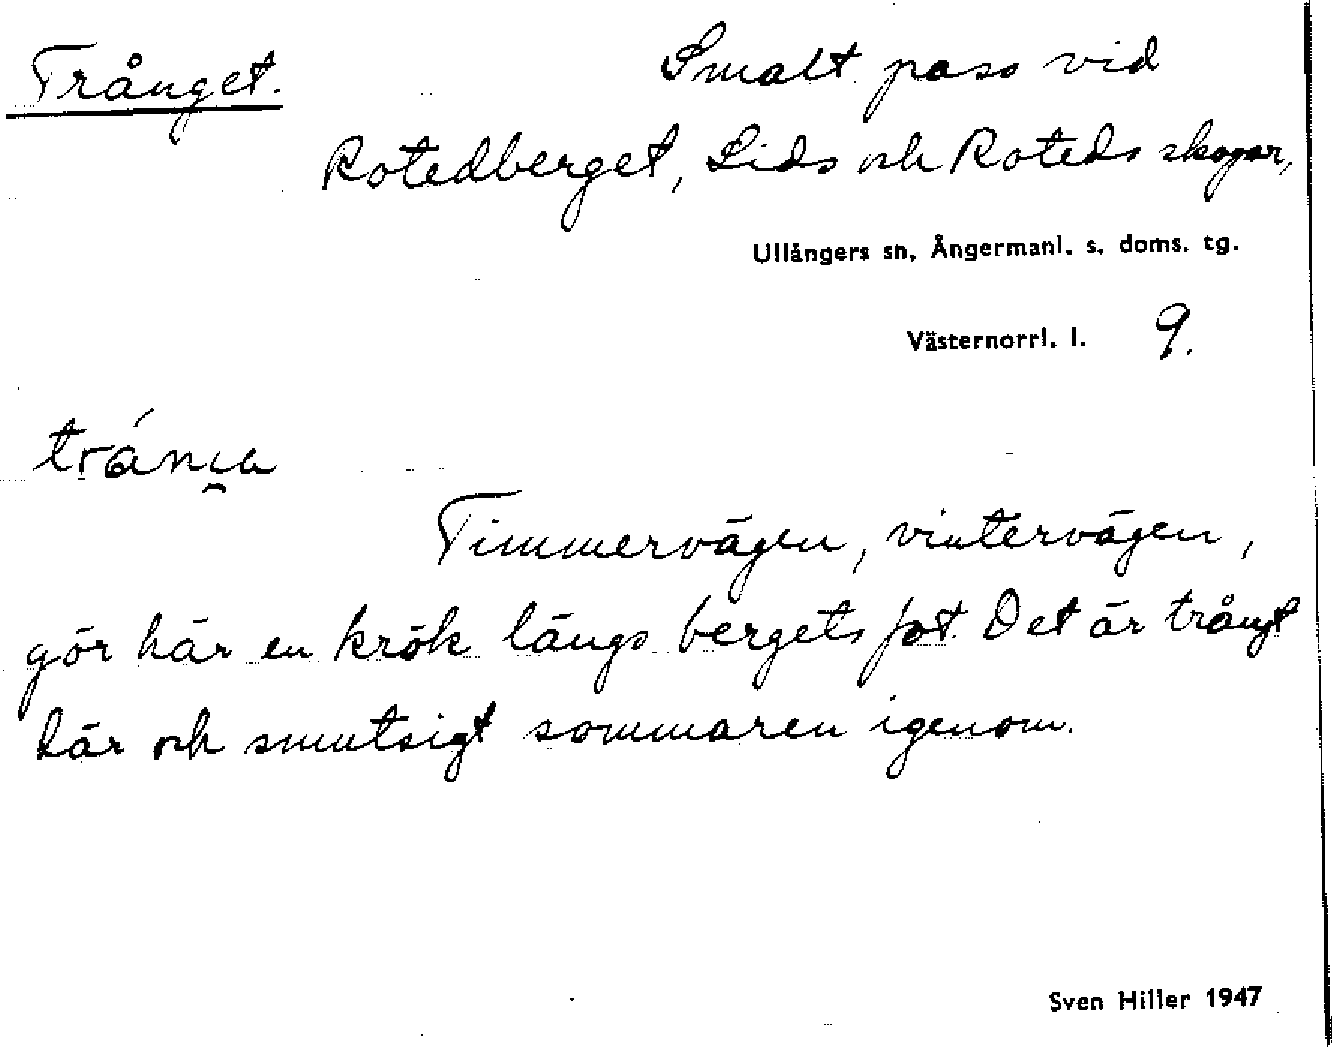 Trånget. Smalt pass vid
Rotedberget, Lids och Roteds skogar,
Ullångers sn, Ångermanl. s. doms. tg.
Västernorrl. l. 9.
Timmervägen, vintervägen,
gör här en krök längs bergets fot. Det är trångt
här och smutsigt sommaren igenom.
Sven Hiller 1947